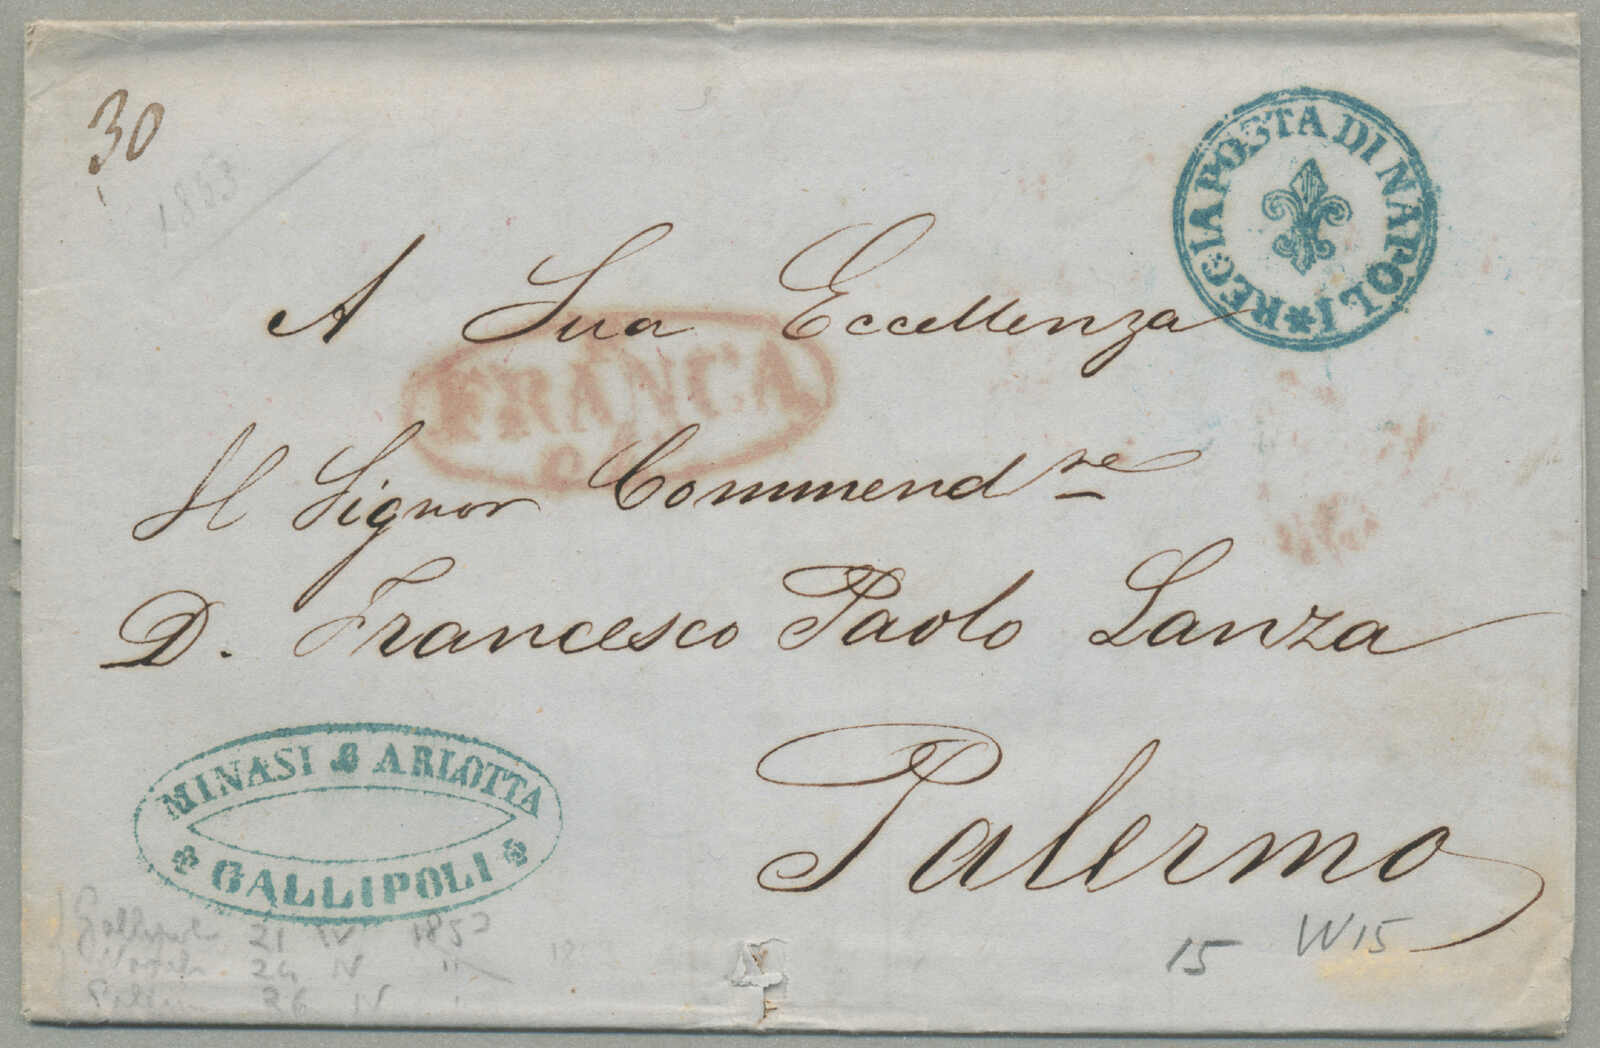 30
1853
REGIA POSTA DI NAPOLI
A Sua Eccellenza
FRANCA
Il Signor Commend.re
D. Francesco Paolo Lanza
Palermo
MINASI & ARLOTTA
GALLIPOLI
21 IV 1853
24 IV "
26 IV "
15 W15